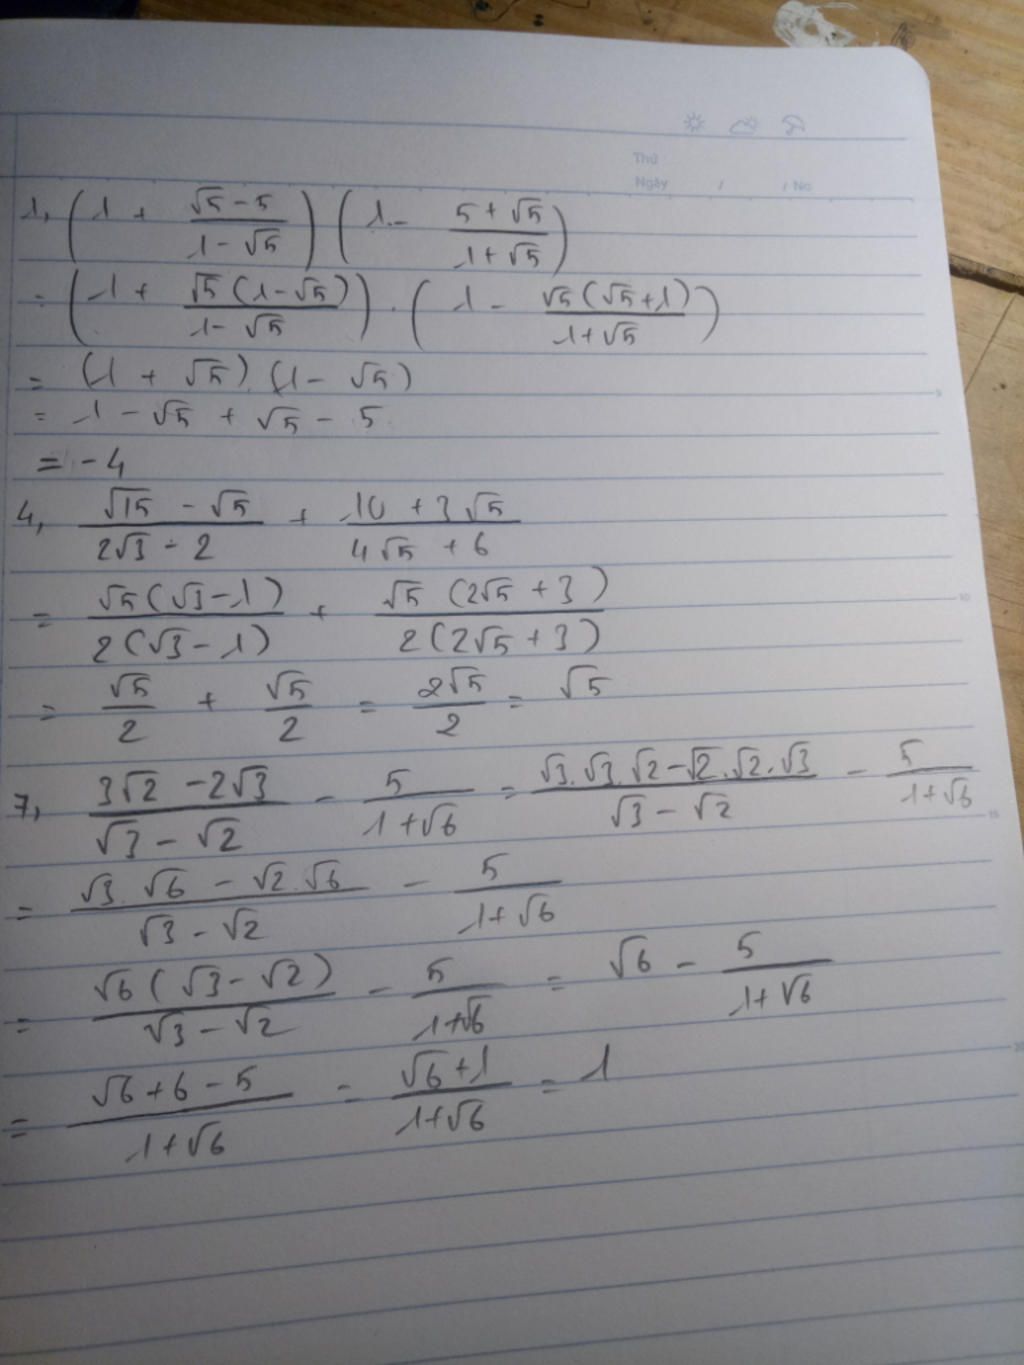 Thứ
Ngày / / No
1, (1 + (√5 - 5)/(1 - √5)) (1 - (5 + √5)/(1 + √5))
= (1 + √5(1 - √5)/(1 - √5)) . (1 - √5(√5 + 1)/(1 + √5))
= (1 + √5).(1 - √5)
= 1 - √5 + √5 - 5
= -4
4, (√15 - √5)/(2√3 - 2) + (10 + 3√5)/(4√5 + 6)
= √5(√3 - 1)/2(√3 - 1) + √5(2√5 + 3)/2(2√5 + 3)
= √5/2 + √5/2 = 2√5/2 = √5
7, (3√2 - 2√3)/(√3 - √2) - 5/(1 + √6) = (√3.√3.√2 - √2.√2.√3)/(√3 - √2) - 5/(1 + √6)
= (√3.√6 - √2.√6)/(√3 - √2) - 5/(1 + √6)
= √6(√3 - √2)/(√3 - √2) - 5/(1 + √6) = √6 - 5/(1 + √6)
= (√6 + 6 - 5)/(1 + √6) = (√6 + 1)/(1 + √6) = 1